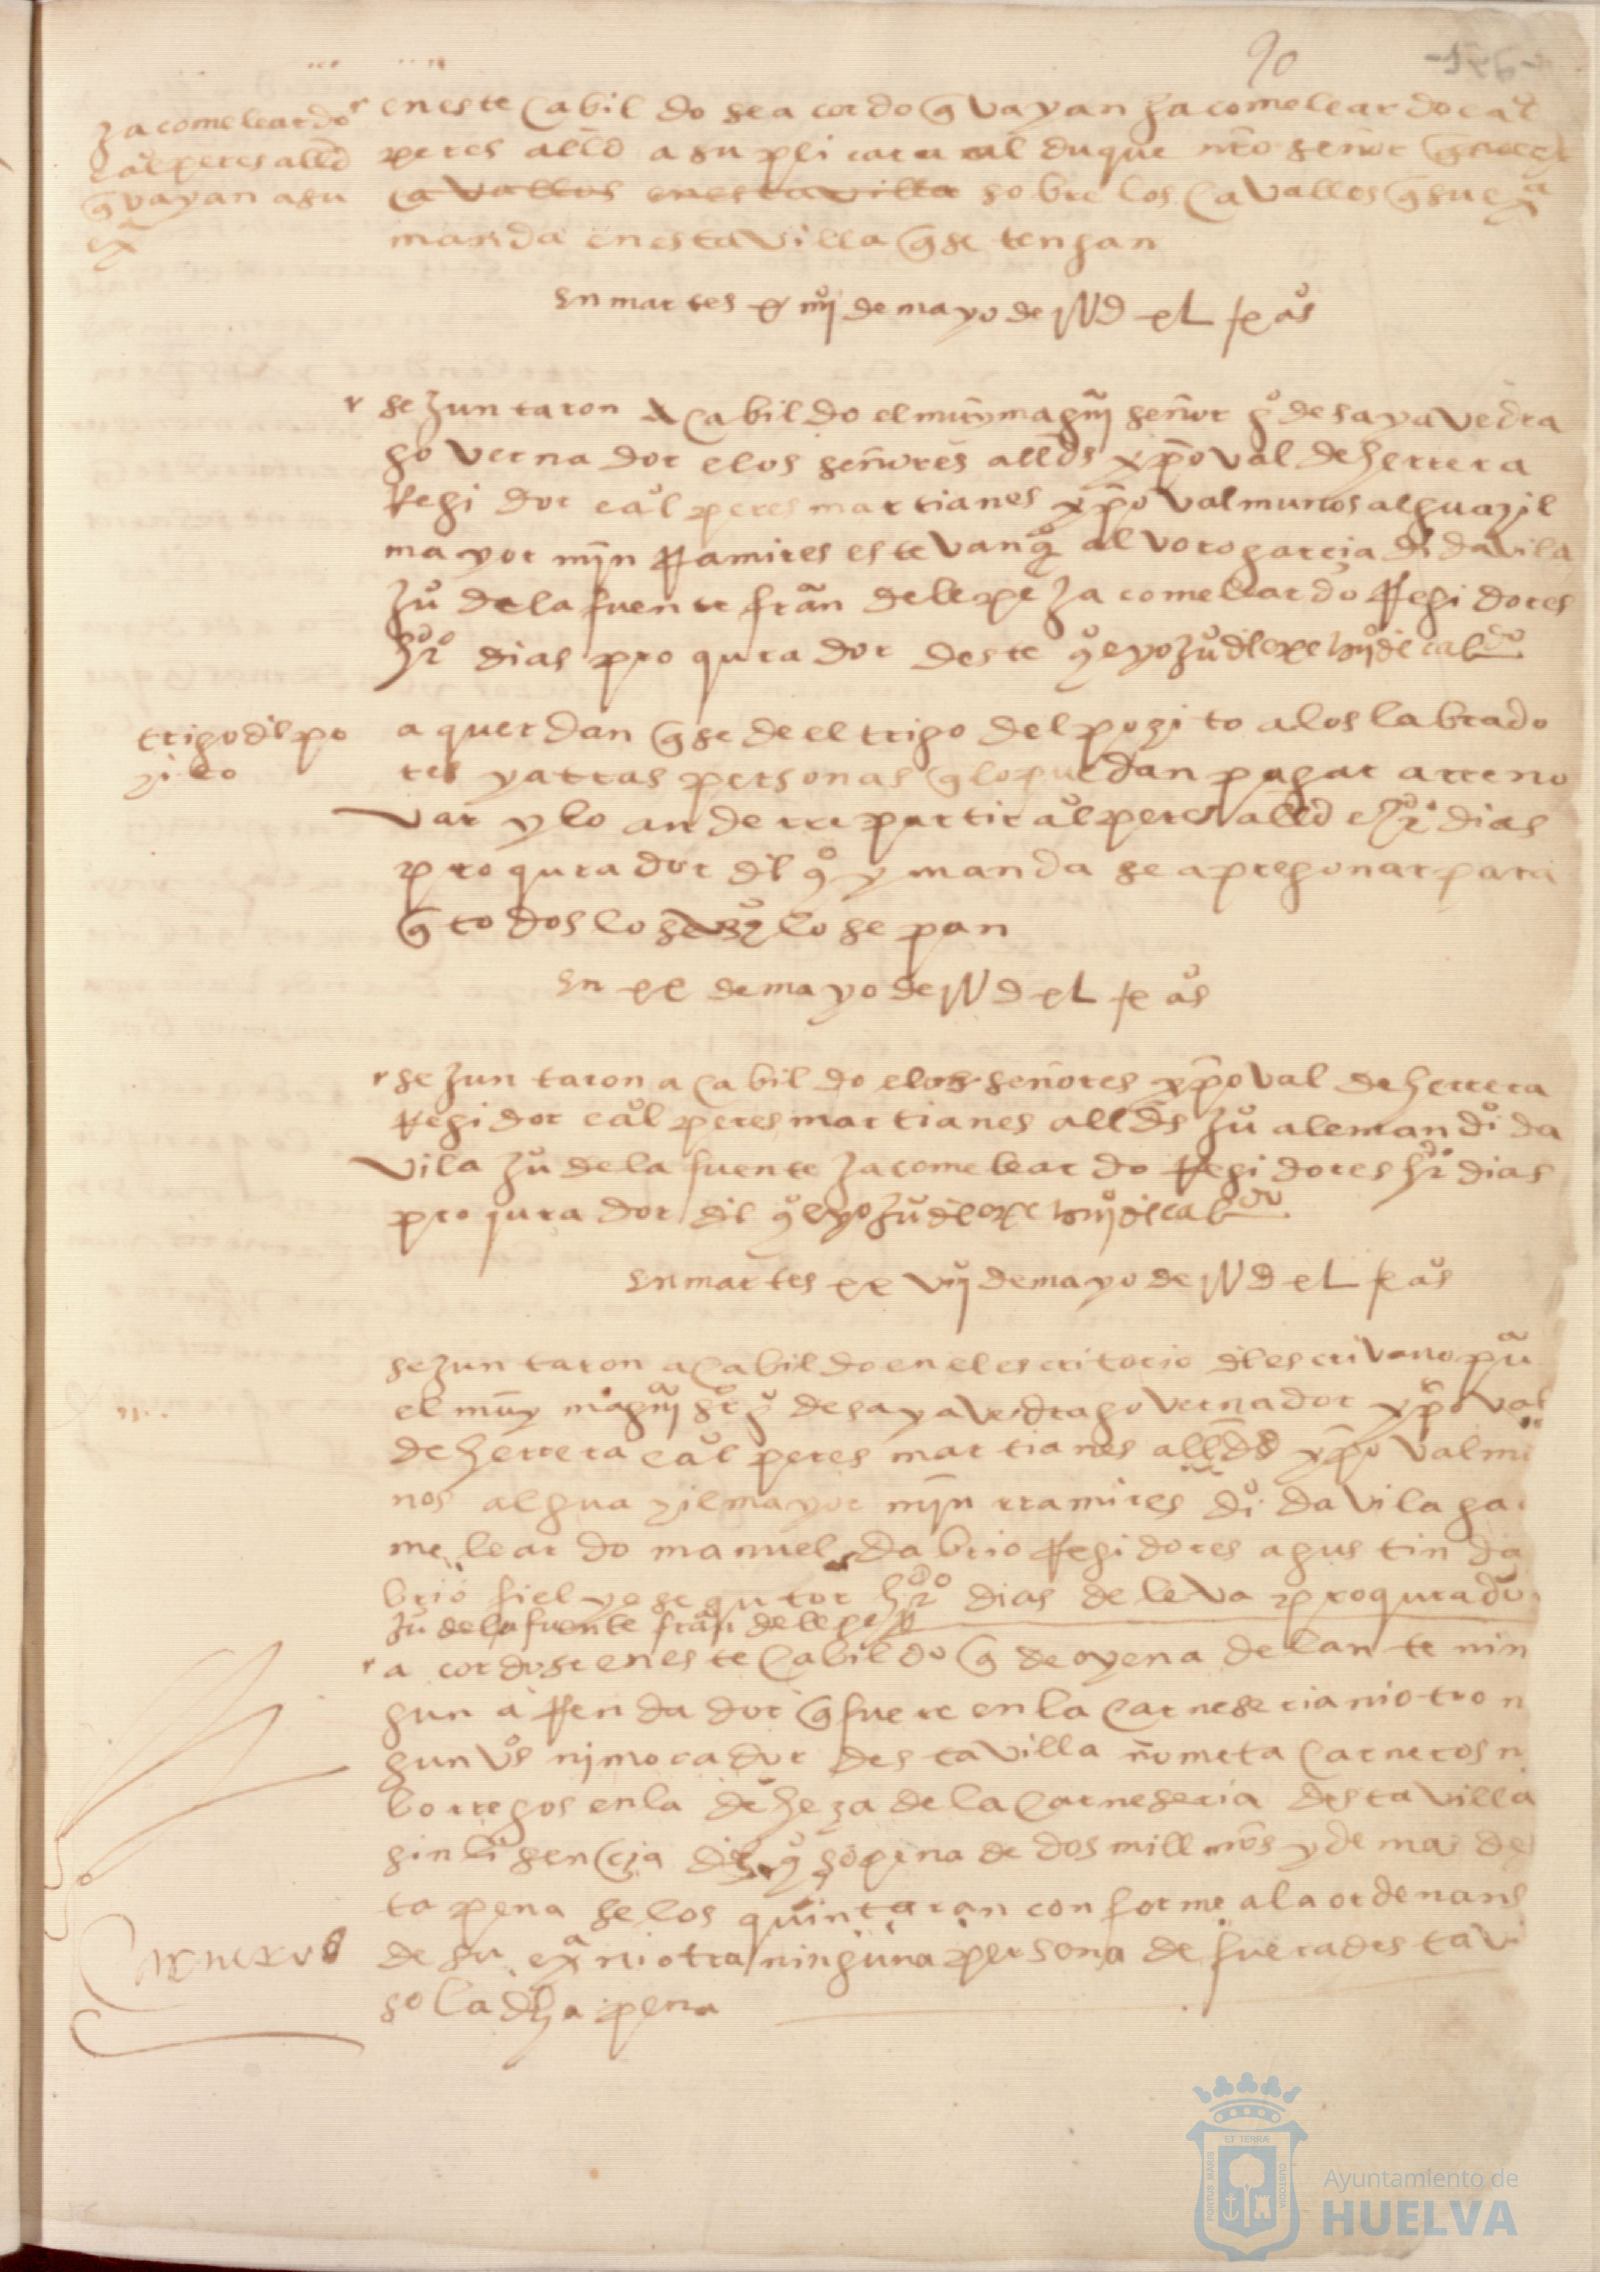 90
en este cabildo se acordo q vayan jacome leardo e aol
jacome leardo
peres alld a suplicar al duque nro señor
aol peres alld
cavallos en esta villa sobre los cavallos q su exa
q vayan a su
exa
manda en esta villa q se tengan
En martes xiiij de mayo de Md xL ix aos
se juntaron a cabildo el muy magco señor go de sayavedra
governador e los señores allds xpoval de herrera
Regidor e aol peres martianes xpoval munos alguazil
mayor min Ramires estevan alvoro garcia di davila
ju de la fuente fran de lepe jacome leardo Regidores
hro dias procurador deste qo e yo ju de lepe escrivano de cabdo
trigo del po
zito
aquerdan q se de el trigo del pozito a los labrado
res y atras personas q lo puedan pagar a rreno
var y lo an de rrepartir aol peres alld e hro dias
procurador del qo y manda se apregonar para
q todos los vezos lo sepan
En xx de mayo de Md xL ix aos
se juntaron a cabildo e los señores xpoval de herrera
Regidor e aol peres martianes allds ju aleman di da
vila ju de la fuente jacome leardo Regidores hro dias
procurador del qo e yo ju de lepe escrivano de cabdo
En martes xx vijj de mayo de Md xL ix aos
se juntaron a cabildo en el escritorio del escrivano pu
el muy magco sr go de sayavedra governador xpoval
de herrera e aol peres martianes allds xpoval mu
nos alguazil mayor min rramires di davila ja
me leardo manuel dabrio Regidores agustin da
brio fiel y esecutor hro dias de leva procurador
ju de la fuente fran de lepe
acordose en este cabildo q de oy en adelante nin
gun aRendador q fuere en la carneseria ni otro n
gun vo ni morador desta villa no meta carneros n
borregos en la deheza de la carneseria desta villa
sin lisencia del qo so pena de dos mill mrs y demas de
ta pena se los quintaran conforme a la ordenans
Carneros
de su exa ni otra ninguna persona de fuera desta vi
so la dha pena
Ayuntamiento de
HUELVA
PORTUS MARIS
ET TERRÆ
CUSTODIA